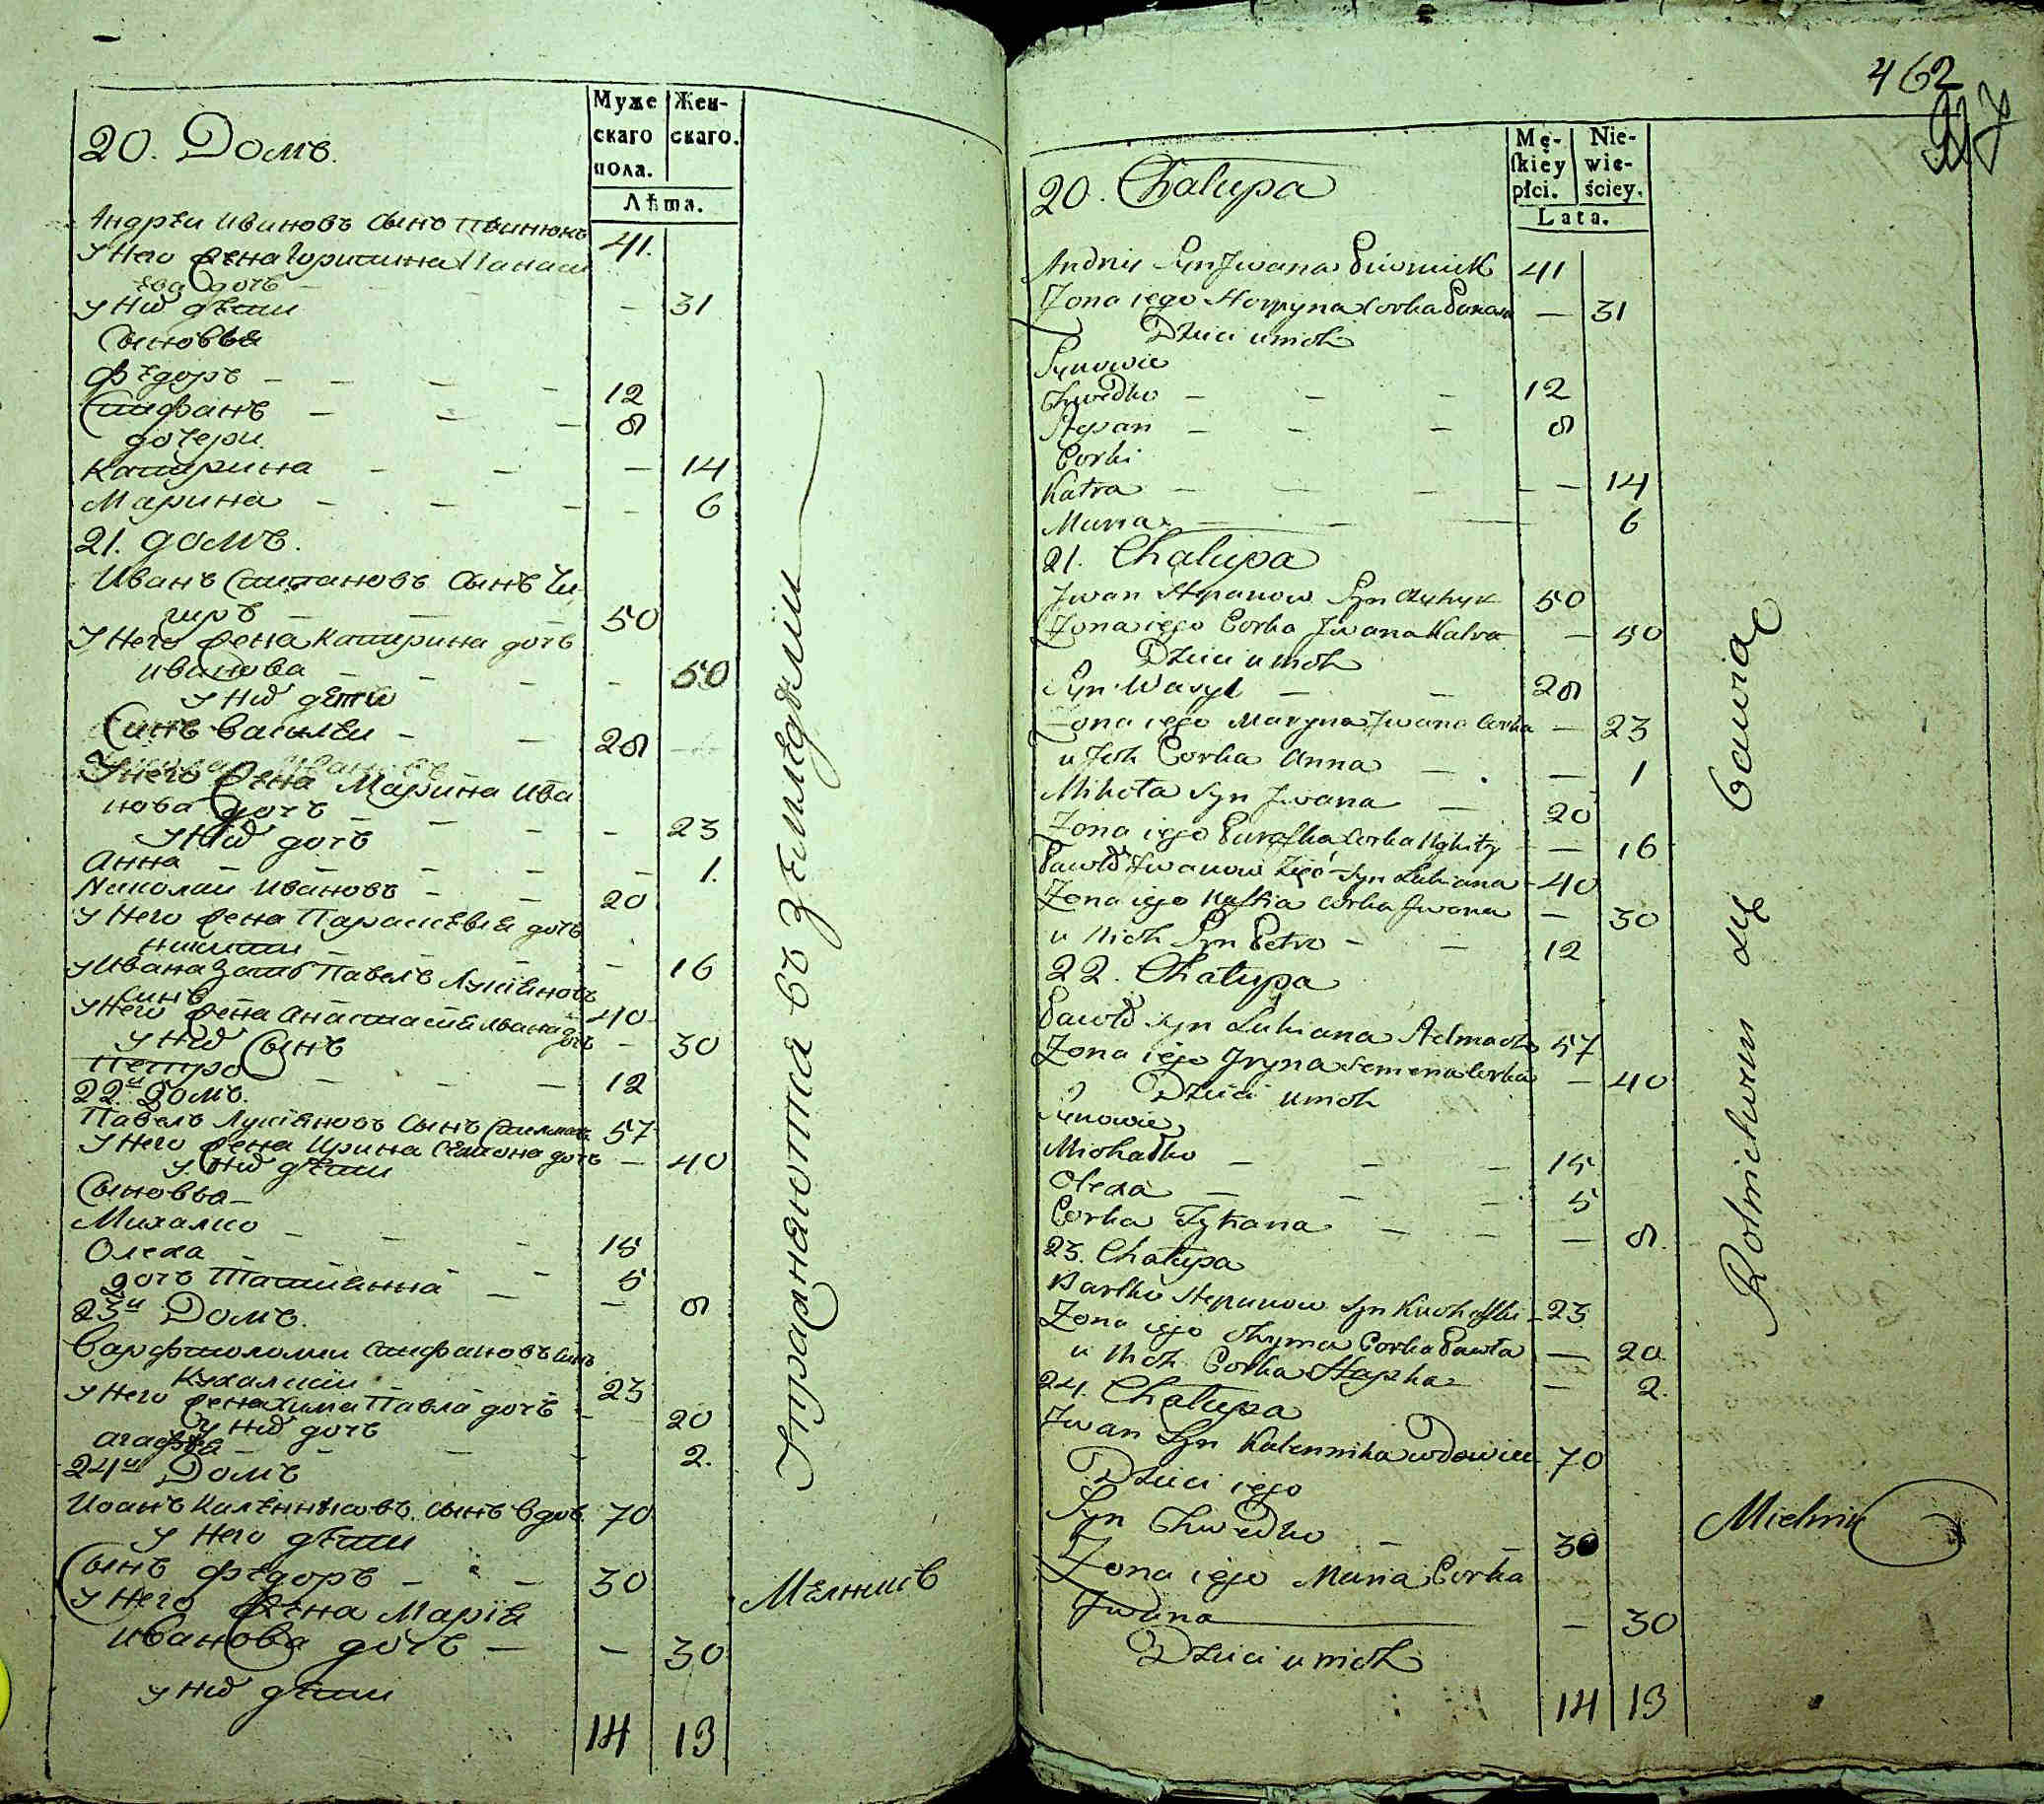 20. Домъ.
Муже
скаго
пола.
Жен-
скаго.
Лѣта.
Андрѣй Ивановъ сынъ 41.
У Него жена Горпинна Панасі
ева дочь — 31
у Них дѣти
Сыновья
Фѣдоръ — — — 12
Стефанъ — — — 8
дочери
Катерина — — — 14
Марина — — — — 6
21. домъ.
Иванъ Степановъ сынъ Чи
гиръ — — 50
У Него жена Катерина дочь
иванова — — — — 50
у Них дети
Синъ Василѣй — — 28
У Него жена Марина Ива
нова дочь — — — — 23
у Них дочь
Анна — — — — — 1.
Николай Ивановъ — — 20
У Него жена Параскевія дочь
никити — — — 16
у Ивана зять Павелъ Лукіяновъ
синъ — 40
У Него жена Анастасія Ивана дочь — 30
у Них Сынъ
Петро — — — 12
22й Домъ.
Павелъ Лукіяновъ Сынъ Стелмахъ 57
У Него жена Ирина Семіона дочь — 40
у Них дѣти
Сыновья —
Михалко — — — 15
Олекса — — — 5
дочь Татіянна — — — 8
23й Домъ.
Варфоломій Стефановъ Синъ
Кухалскій — 23
У Него жена Хима Павла дочь — 20
у Них дочь
агафія — — — — 2.
24й Домъ
Иванъ Каленниковъ сынъ вдов. 70
у Него дѣти
Сынъ Фѣдоръ — — — 30
У Него жена Марія
Иванова дочь — — 30
у Них дѣти
14 13
Упражняются въ земледѣліи
Мелникъ
462
20. Chałupa
Mę-
skiéy
płci.
Nie-
wie-
ściey.
Lata.
Andriy Syn Jwana 41
Zona iego Horpyna Corka Panasa — 31
Dzieci u nich
Synowie
Chwedko — — — 12
Stepan — — — 8
Corki
Katra — — — — — 14
Maria — — — 6
21. Chałupa
Jwan Stepanow Syn Czyhyr 50
Zona iego Corka Jwana Katra — 50
Dzieci u nich
Syn Wasyl — — 28
Zona iego Maryna Jwana Corka — 23
u Jch Corka Anna — — 1
Mikoła Syn Jwana — 20
Zona iego Paraska Corka Mykity — 16
Pawło Jwanow Zięć Syn Lukiana — 40
Zona iego Nastia corka Jwana — 30
u Nich Syn Petro — — 12
22. Chałupa
Pawło Syn Lukiana Stelmach 57
Zona iego Jryna Semena Corka — 40
Dzieci u nich
Synowie
Michałko — — — 15
Olexa — — — 5
Corka Tytiana — — — 8.
23. Chałupa
Bartko Stepanow Syn Kuchalski — 23
Zona iego Chyma Corka Pawła — 20
u Nich Corka Hapka — 2.
24. Chałupa
Jwan Syn Kalennika wdowiec 70
Dzieci iego
Syn Chwedko — — 30
Zona iego Maria Corka
Jwana — 30
Dzieci u nich
14 13
Rolnictwem się bawią
Mielnik